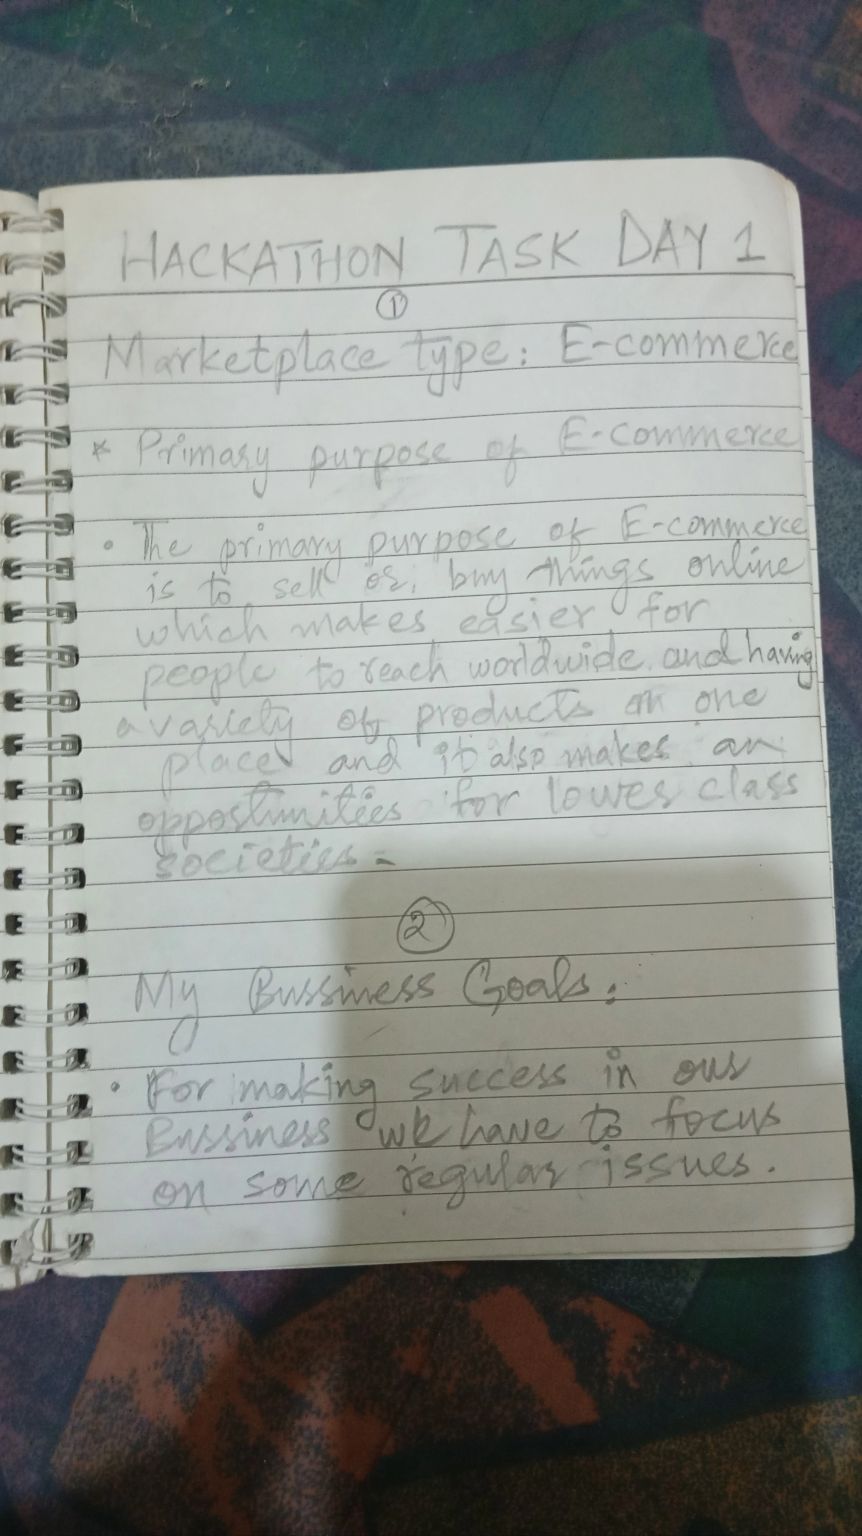 HACKATHON TASK DAY 1
①
Marketplace type: E-commerce
* Primary purpose of E-commerce
• The primary purpose of E-commerce
is to sell or, buy things online
which makes easier for
people to reach worldwide and having
a variety of products on one
place and it also makes an
opportunities for lower class
societies.
②
My Bussiness Goals:
• For making success in our
Bussiness we have to focus
on some regular issues.